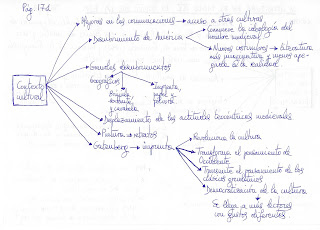 Pág. 172
Mejoras en las comunicaciones → acceso a otras culturas
Descubrimiento de América
Remueve la cosmología del
hombre medieval
Nuevas costumbres → literatura
más imaginativa y menos ape-
gada a la realidad
Grandes descubrimientos
Geográficos
Brújula,
y carabela
Imprenta,
papel y
pólvora
Contexto
cultural
Desplazamiento de las actitudes teocéntricas medievales
Pintura → retratos
Gutenberg → imprenta
Revoluciona la cultura
Transforma el pensamiento de
Occidente
Transmite el pensamiento de los
clásicos grecolatinos
Democratización de la cultura
Se llega a más lectores
con gustos diferentes